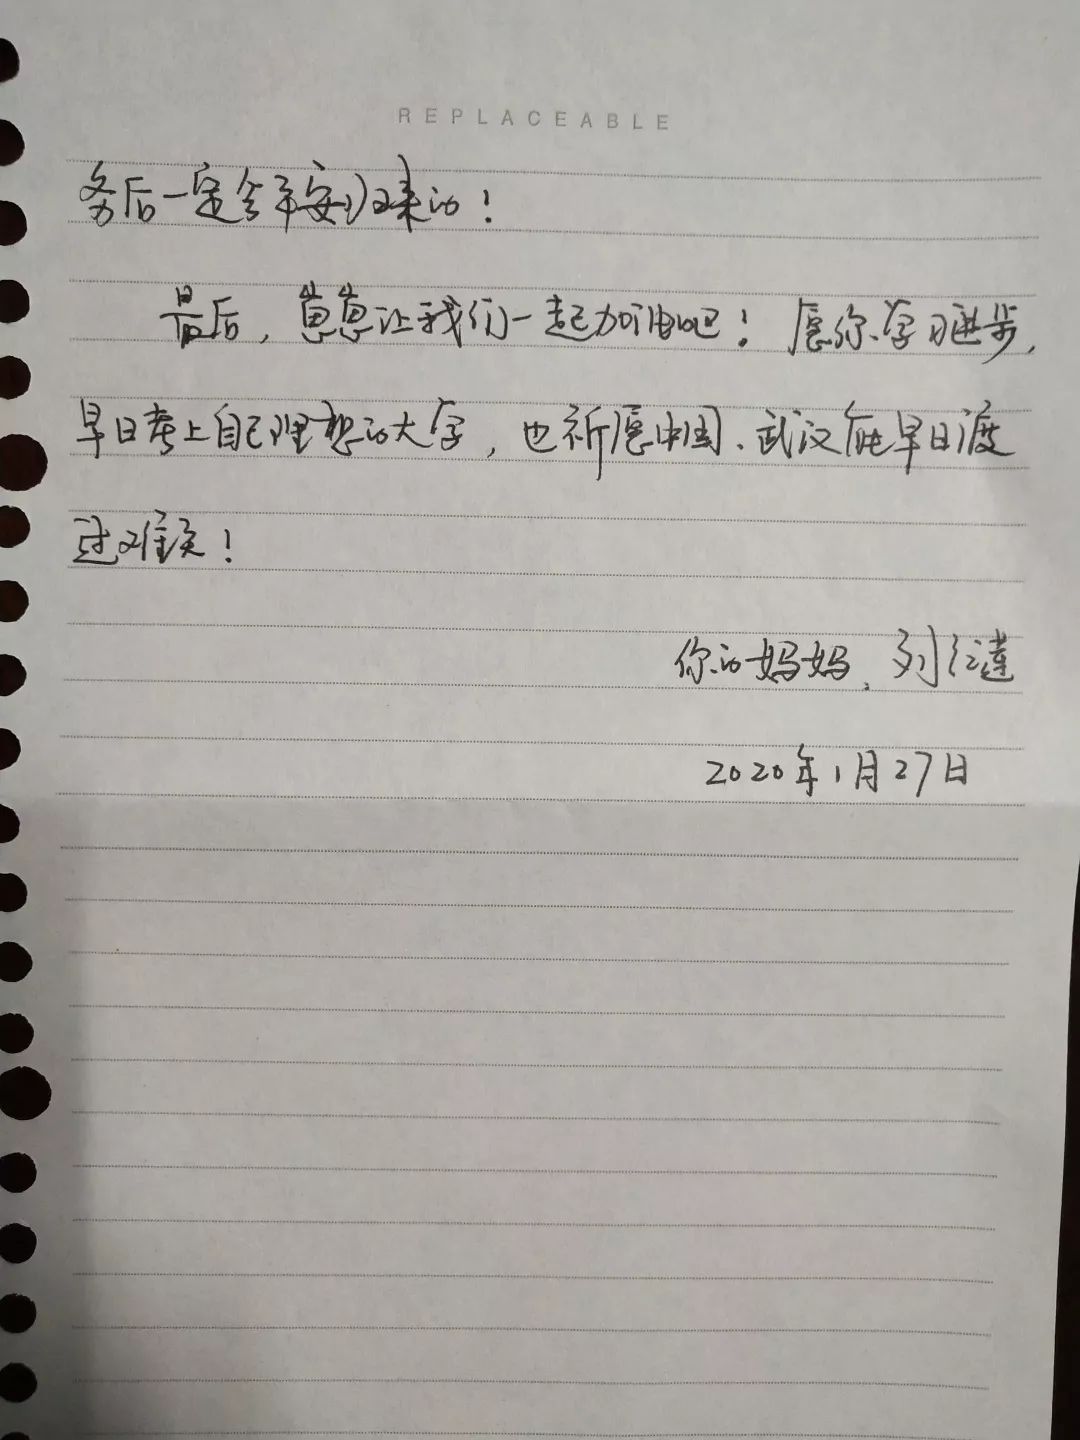 REPLACEABLE
务后一定会平安归来的！
最后，崽崽让我们一起加油吧！愿你学习进步，
早日考上自己理想的大学，也祈愿中国、武汉能早日渡
过难关！
你的妈妈，刘红莲
2020年1月27日